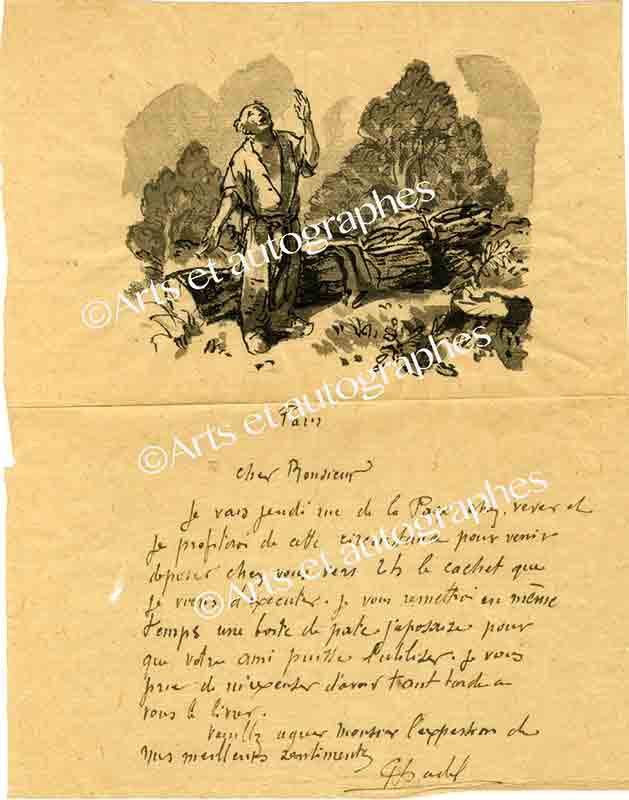 ©Arts et autographes
©Arts et autographes
©Arts et autographes
Paris
Cher Monsieur
Je vais jeudi rue de la Paix chez vever et
je profiterai de cette circonstance pour venir
deposer chez vous vers 2h le cachet que
je viens d'executer. je vous remettrai en même
temps une boite de pate japonaise pour
que votre ami puisse l'utiliser. je vous
prie de m'excuser d'avoir tant tardé a
vous le livrer.
Veuillez agreer Monsieur l'expression de
mes meilleurs sentiments